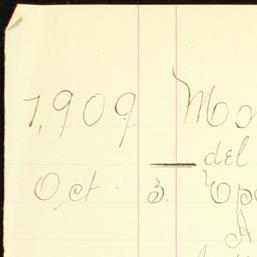 1,909. Mo
del
Oct. 3. Epo
A